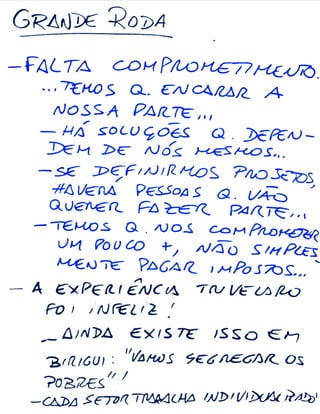 GRANDE RODA
– FALTA COMPROMETIMENTO.
... TEMOS Q. ENCARAR A
NOSSA PARTE...
– HÁ SOLUÇÕES Q. DEPEN-
DEM DE NÓS MESMOS...
– SE DEFINIRMOS PROJETOS,
HAVERÁ PESSOAS Q. VÃO
QUERER FAZER PARTE...
– TEMOS Q. NOS COMPROMETER
UM POUCO +, NÃO SIMPLES
MENTE PAGAR IMPOSTOS...
– A EXPERIÊNCIA
FOI INFELIZ!
– AINDA EXISTE ISSO EM
BIRIGUI: "VAMOS SEGREGAR OS
POBRES"!
– CADA SETOR TRABALHA INDIVIDUALIZADO